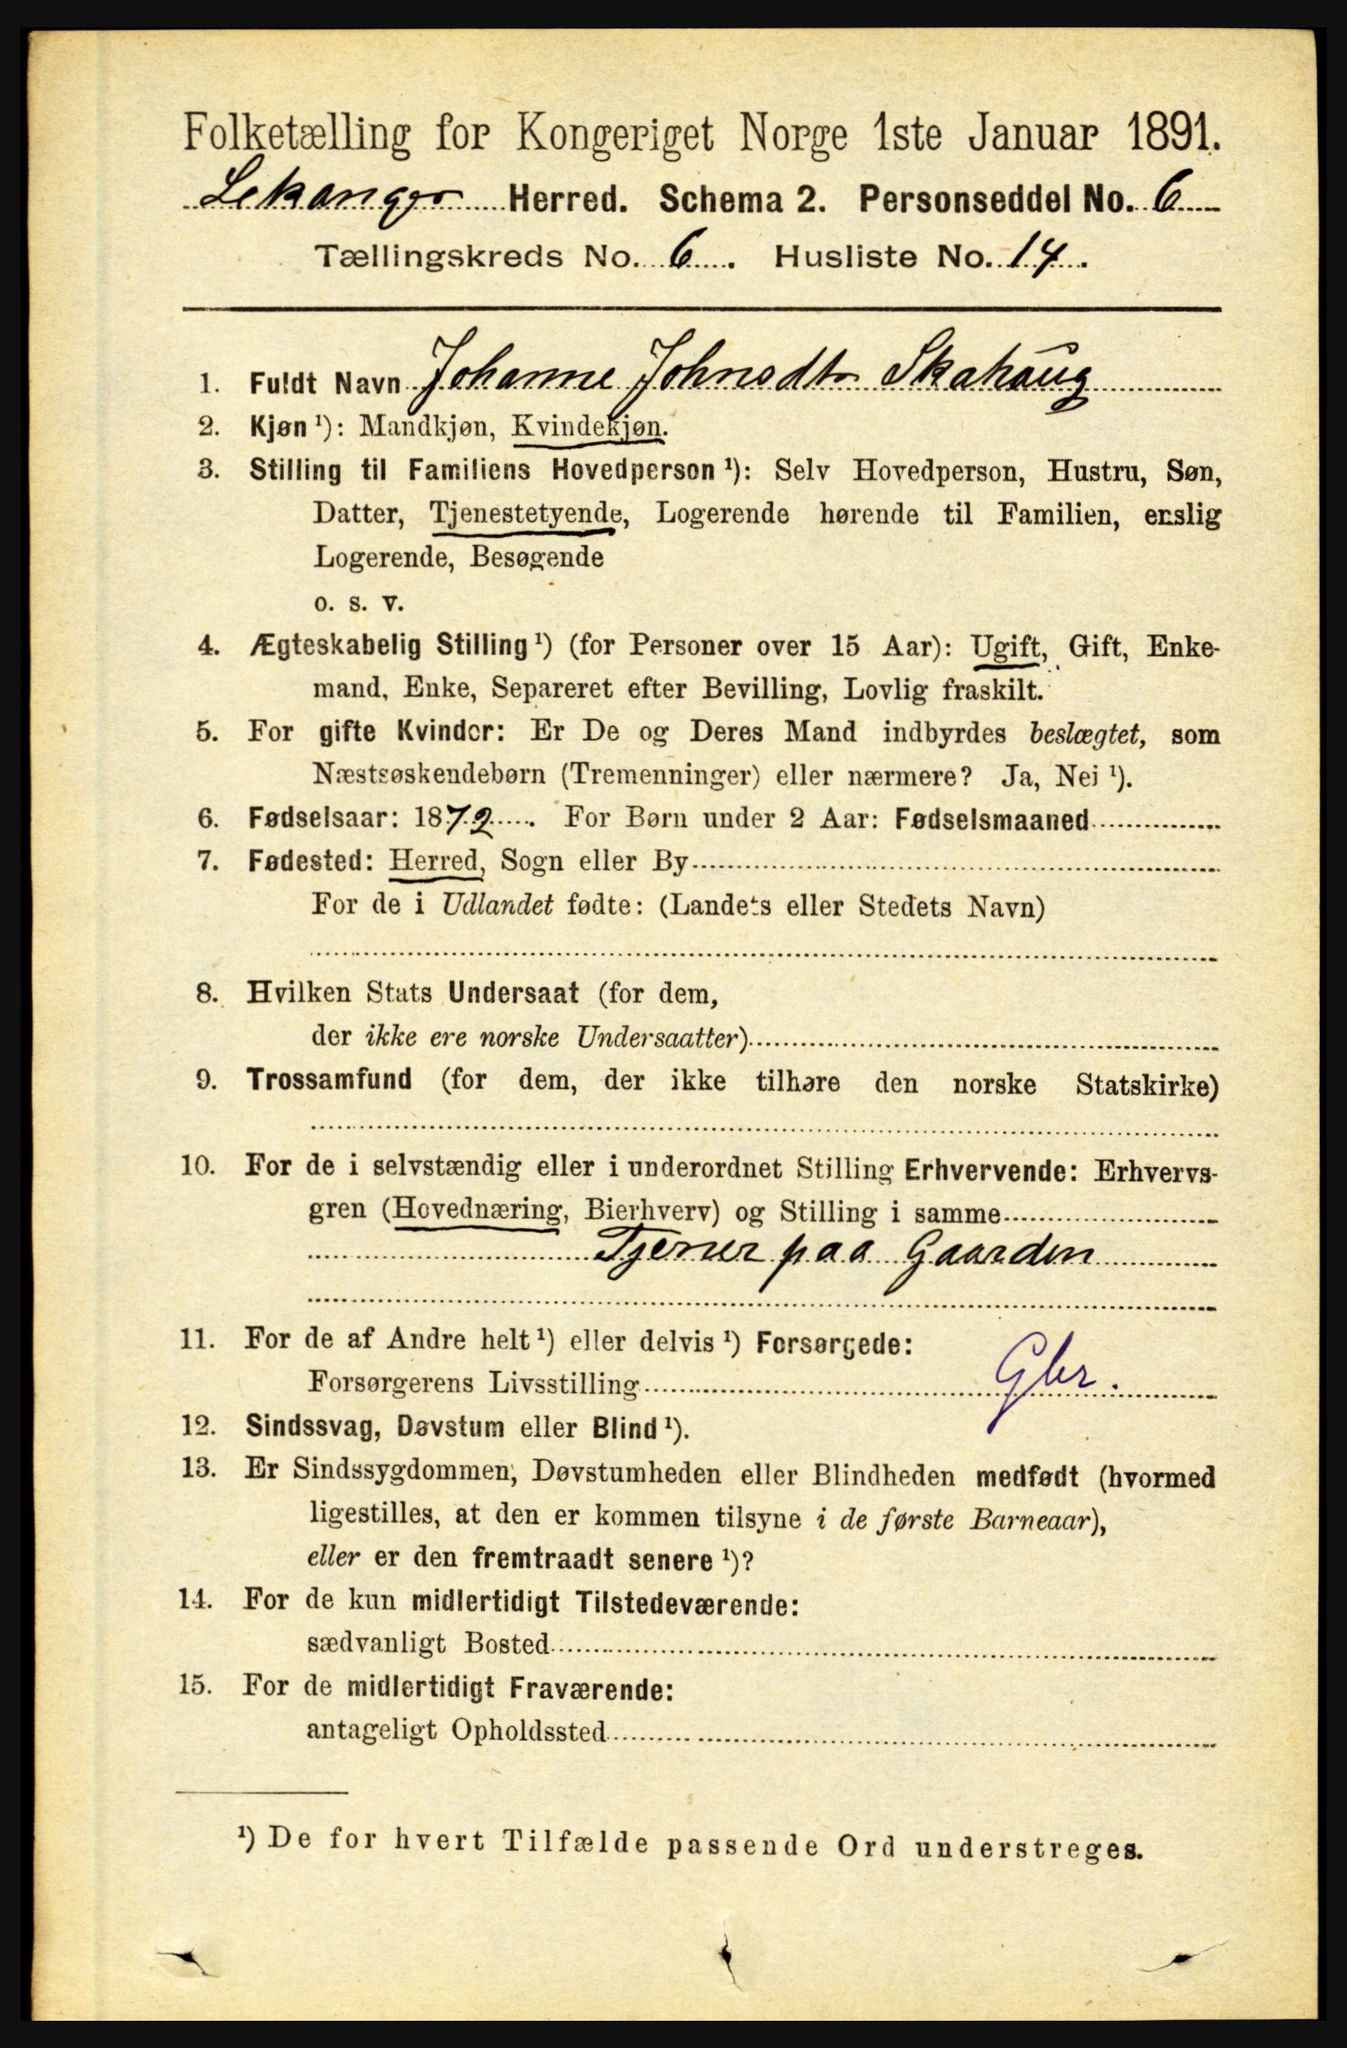 Folketælling for Kongeriget Norge 1ste Januar 1891.
Lekanger Herred. Schema 2. Personseddel No. 6
Tællingskreds No. 6. Husliste No. 14.
1. Fuldt Navn Johanne Johnsdtr Skahaug
2. Kjøn ¹): Mandkjøn, Kvindekjøn.
3. Stilling til Familiens Hovedperson ¹): Selv Hovedperson, Hustru, Søn,
Datter, Tjenestetyende, Logerende hørende til Familien, enslig
Logerende, Besøgende
o. s. v.
4. Ægteskabelig Stilling ¹) (for Personer over 15 Aar): Ugift, Gift, Enke-
mand, Enke, Separeret efter Bevilling, Lovlig fraskilt.
5. For gifte Kvinder: Er De og Deres Mand indbyrdes beslægtet, som
Næstsøskendebørn (Tremenninger) eller nærmere? Ja, Nei ¹).
6. Fødselsaar: 1872. For Børn under 2 Aar: Fødselsmaaned
7. Fødested: Herred, Sogn eller By
For de i Udlandet fødte: (Landets eller Stedets Navn)
8. Hvilken Stats Undersaat (for dem,
der ikke ere norske Undersaatter)
9. Trossamfund (for dem, der ikke tilhøre den norske Statskirke)
10. For de i selvstændig eller i underordnet Stilling Erhvervende: Erhvervs-
gren (Hovednæring, Bierhverv) og Stilling i samme
Tjener paa Gaarden
11. For de af Andre helt ¹) eller delvis ¹) Forsørgede:
Forsørgerens Livsstilling Gbr.
12. Sindssvag, Døvstum eller Blind ¹).
13. Er Sindssygdommen, Døvstumheden eller Blindheden medfødt (hvormed
ligestilles, at den er kommen tilsyne i de første Barneaar),
eller er den fremtraadt senere ¹)?
14. For de kun midlertidigt Tilstedeværende:
sædvanligt Bosted
15. For de midlertidigt Fraværende:
antageligt Opholdssted
¹) De for hvert Tilfælde passende Ord understreges.